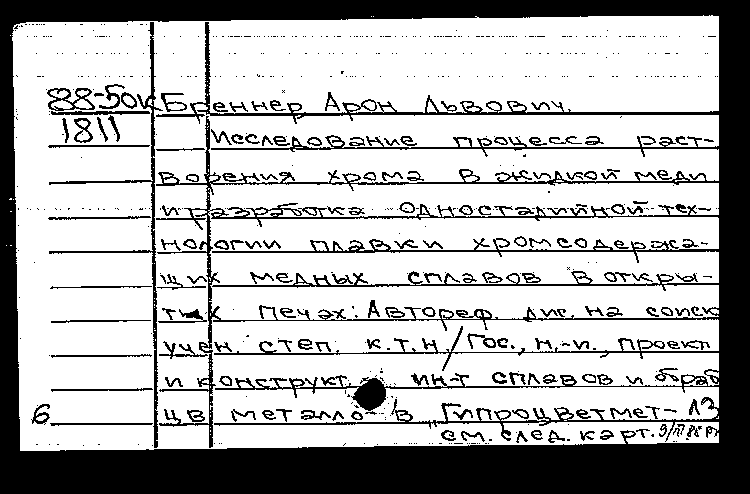 88-5ок Бреннер Арон Львович.
1811 Исследование процесса раст-
ворения хрома в жидкой меди
и разработка одностадийной тех-
нологии плавки хромсодержа-
щих медных сплавов в откры-
тых печах: Автореф. дис. на соиск
учен. степ. к.т.н. / Гос., н.-и., проект
и конструкт. ин-т сплавов и обраб
6 цв металлов „Гипроцветмет-
см. след. карт.